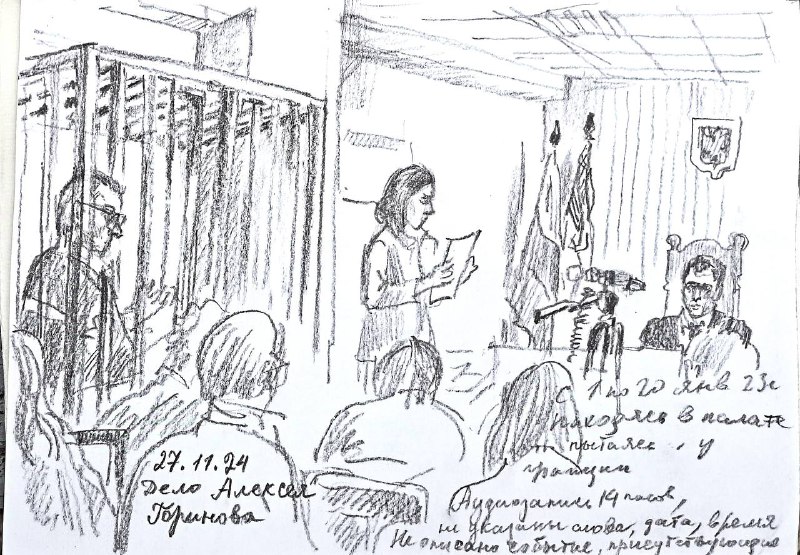 27.11.24
Дело Алексея
Горинова
С 1 по 20 янв 23г
находясь в палате
пытаясь, у
Аудиозапись 14 часов,
не указаны слова, дата, время
Не описано событие, присутствующие